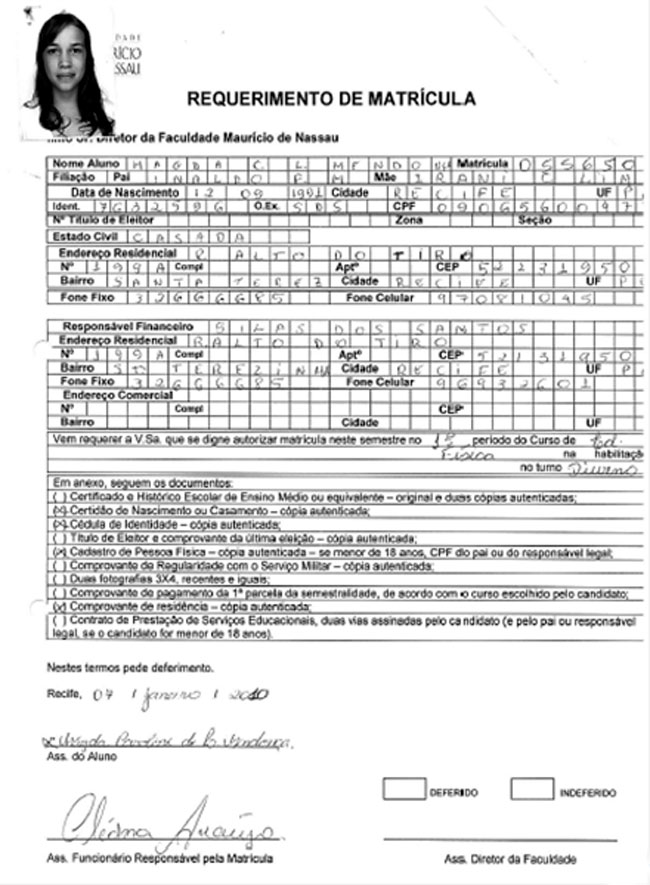 DADE
RÍCIO
SSAU
REQUERIMENTO DE MATRÍCULA
Diretor da Faculdade Maurício de Nassau
Nome Aluno MAGDA C. L. MENDO Matrícula 055650
Filiação Pai INALDO F. M Mãe IRANI E LIM
Data de Nascimento 12 09 1991 Cidade RECIFE UF P
Ident. 7632596 O.Ex. SDS CPF 09065600497
Nº Título de Eleitor Zona Seção
Estado Civil CASADA
Endereço Residencial R ALTO DO TIRO
Nº 199A Compl Aptº CEP 52231950
Bairro SANTA TEREZ Cidade RECIFE UF P
Fone Fixo 32666685 Fone Celular 97081045
Responsável Financeiro SILAS DOS SANTOS
Endereço Residencial R ALTO DO TIRO
Nº 199A Compl Aptº CEP 52131950
Bairro TEREZINHA Cidade RECIFE UF P
Fone Fixo 32666685 Fone Celular 96932601
Endereço Comercial
Nº Compl CEP
Bairro Cidade UF
Vem requerer a V.Sa. que se digne autorizar matrícula neste semestre no 1º período do Curso de Ed.
Física na habilitaçã
no turno Diurno
Em anexo, seguem os documentos:
( ) Certificado e Histórico Escolar de Ensino Médio ou equivalente – original e duas cópias autenticadas;
(x) Certidão de Nascimento ou Casamento – cópia autenticada;
(x) Cédula de Identidade – cópia autenticada;
( ) Título de Eleitor e comprovante da última eleição – cópia autenticada;
(x) Cadastro de Pessoa Física – cópia autenticada – se menor de 18 anos, CPF do pai ou do responsável legal;
( ) Comprovante de Regularidade com o Serviço Militar – cópia autenticada;
( ) Duas fotografias 3X4, recentes e iguais;
( ) Comprovante de pagamento da 1ª parcela da semestralidade, de acordo com o curso escolhido pelo candidato;
(x) Comprovante de residência – cópia autenticada;
( ) Contrato de Prestação de Serviços Educacionais, duas vias assinadas pelo candidato (e pelo pai ou responsável
legal, se o candidato for menor de 18 anos).
Nestes termos pede deferimento.
Recife, 07 / janeiro / 2010
x Magda Caroline de L. Mendonça
Ass. do Aluno
DEFERIDO INDEFERIDO
Cleama Araújo
Ass. Funcionário Responsável pela Matrícula Ass. Diretor da Faculdade